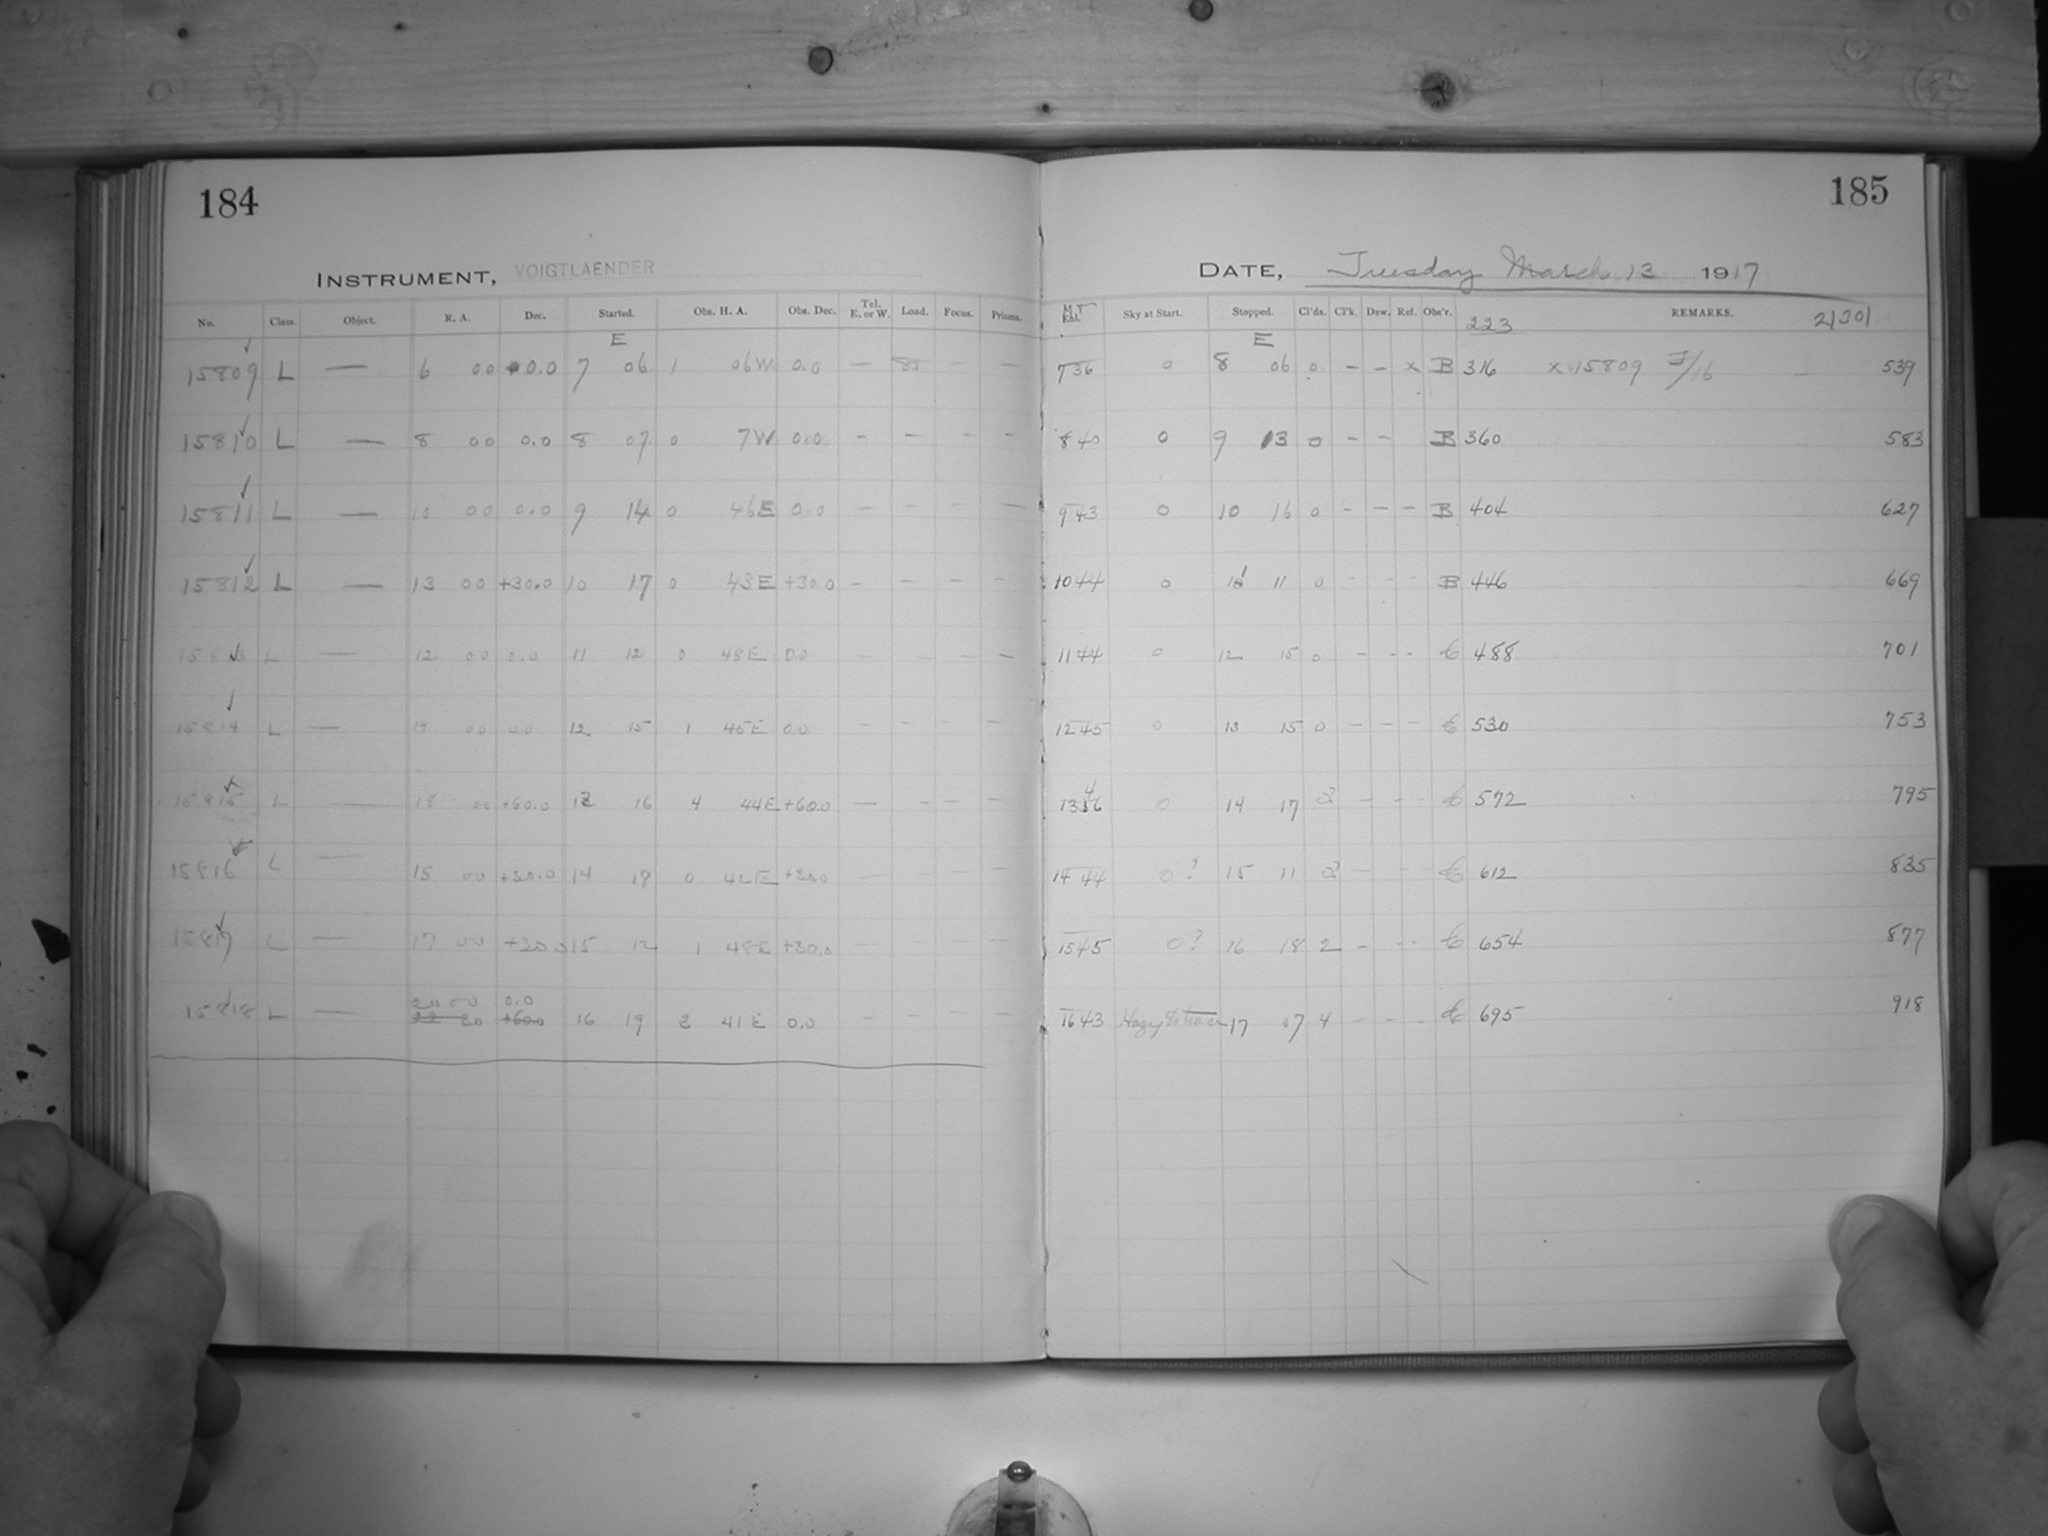 184
INSTRUMENT, VOIGTLAENDER
No. Class. Object. R. A. Dec. Started. Obs. H. A. Obs. Dec. Tel. E. or W. Load. Focus. Prisms.
E
15809 L — 6 00 0.0 7 06 1 06W 0.0 — 85 — —
15810 L — 8 00 0.0 8 07 0 7W 0.0 - - - -
15811 L — 10 00 0.0 9 14 0 46E 0.0 - - - —
15812 L — 13 00 +30.0 10 17 0 43E +30.0 - - - -
15813 L — 12 00 0.0 11 12 0 48E 0.0 — - - —
15814 L — 14 00 0.0 12 15 1 45E 0.0 - - - -
15815 L — 18 00 +60.0 13 16 4 44E +60.0 — - - —
15816 L — 15 00 +30.0 14 18 0 42E +30.0 — - —
15817 L — 17 00 +30.0 15 12 1 48E +30.0 — —
20 00 0.0
15818 L — 16 19 3 41E 0.0 - - —
185
DATE, Tuesday March 13 1917
M T Sky at Start. Stopped. Cl'ds. Cl'k. Dew. Ref. Obs'r. 223 REMARKS. 21301
E
736 0 8 06 0 - - x B 316 x 15809 F/16 539
840 0 9 13 0 - - B 360 583
943 0 10 16 0 - - - B 404 627
1044 0 11 11 0 - - - B 446 669
1144 0 12 15 0 - - - C 488 701
1245 0 13 15 0 - - - C 530 753
4
1356 0 14 17 2 - - - C 572 795
1444 0? 15 11 2 - - C 612 835
1545 0? 16 18 2 - - - C 654 877
1643 Hazy 17 07 4 - - - C 695 918